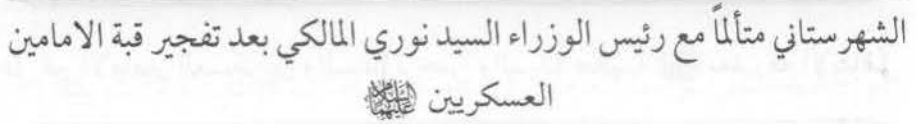 الشهرستاني متألماً مع رئيس الوزراء السيد نوري المالكي بعد تفجير قبة الامامين
العسكريين عليهما السلام